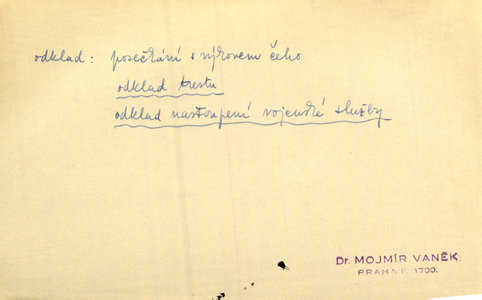 odklad: posečkání s výkonem čeho
odklad trestu
odklad nastoupení vojenské služby
Dr. MOJMÍR VANĚK
PRAHA 1700.